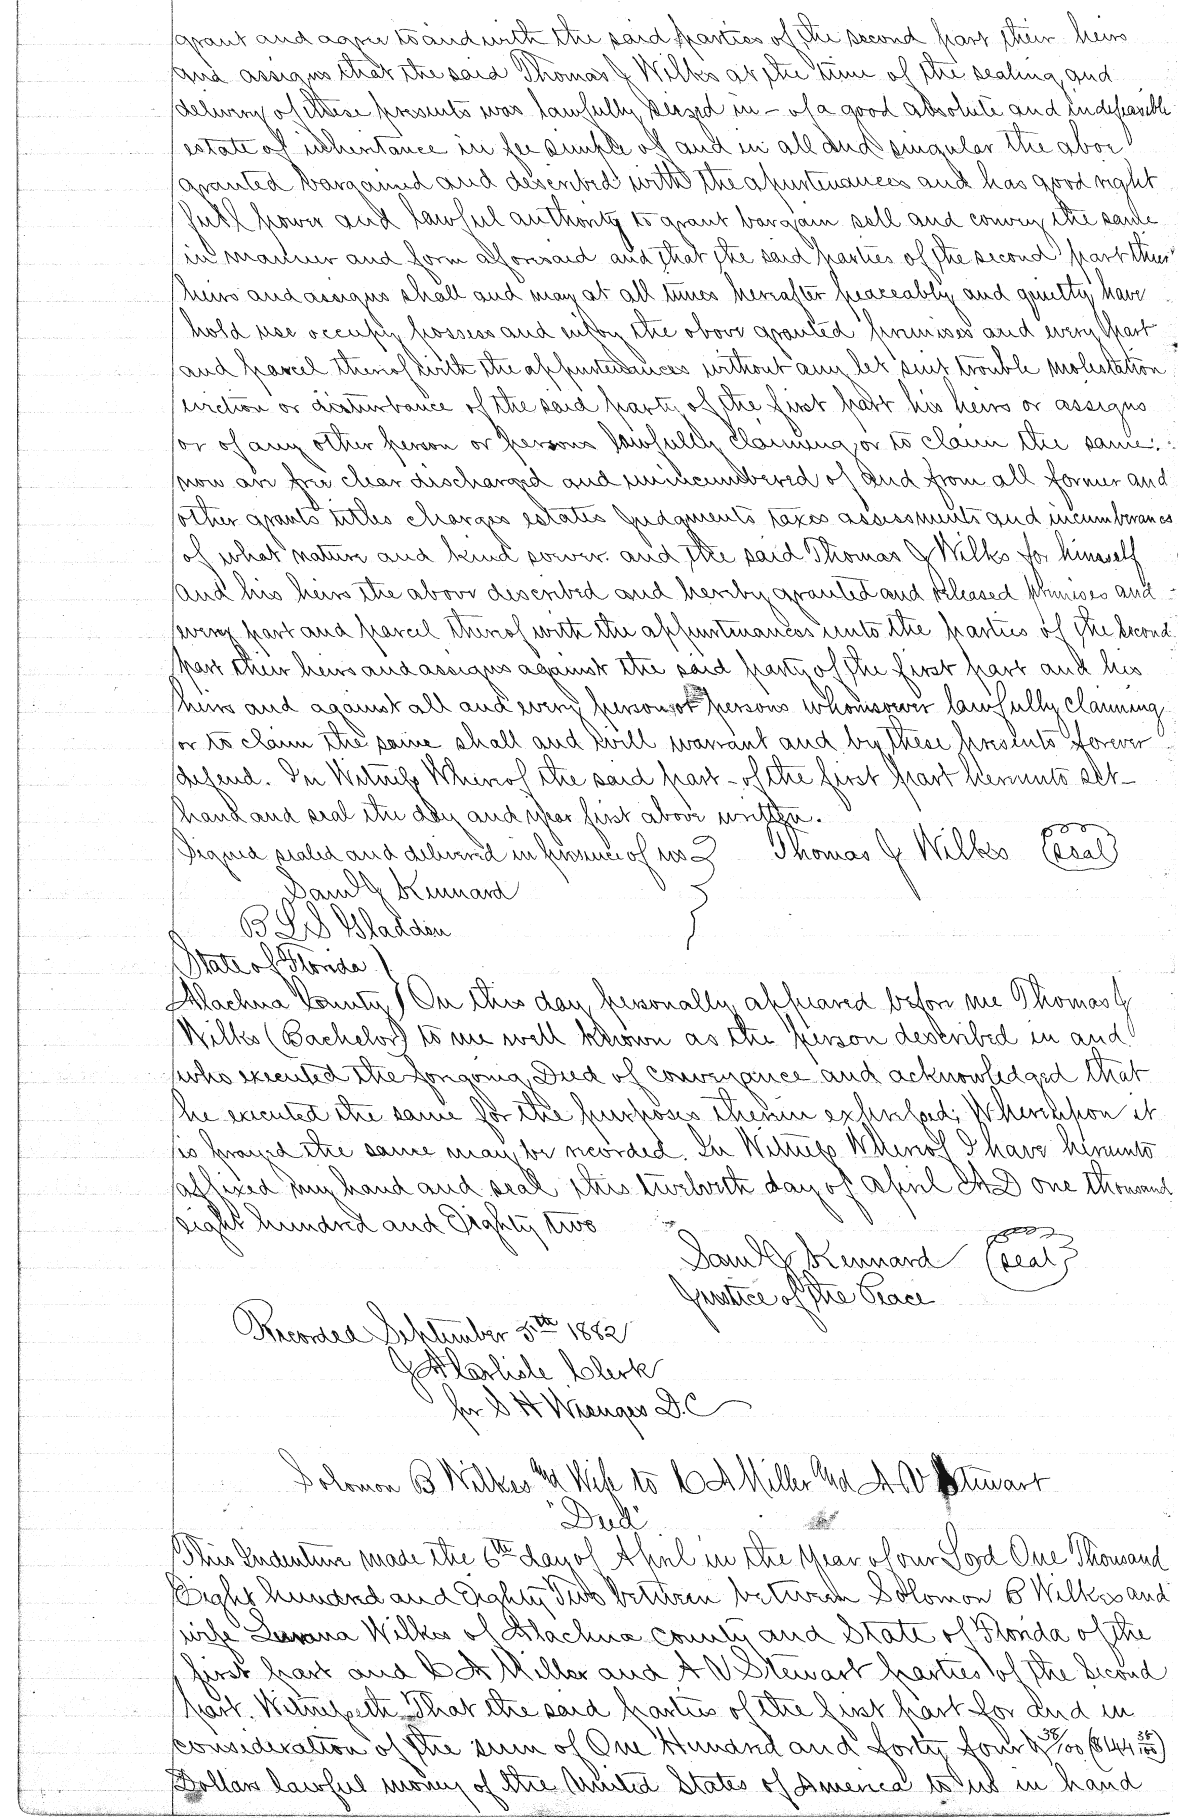 grant and agree to and with the said parties of the second part their heirs
and assigns that the said Thomas J Wilks at the time of the sealing and
delivery of these presents was lawfully seized in - of a good absolute and indefeasible
estate of inheritance in fee simple of and in all and singular the abov
granted bargained and described with the apurtenances and has good right
full power and lawful authority to grant bargain sell and convey the same
in manner and form aforesaid and that the said parties of the second part their
heirs and assigns shall and may at all times hereafter peaceably and quietly have
hold use occupy possess and enjoy the above granted premises and every part
and parcel thereof with the appurtenances without any let suit trouble molestation
eviction or disturbance of the said party of the first part his heirs or assigns
or of any other person or persons lawfully claiming or to claim the same.
now are free clear discharged and unincumbered of and from all former and
other grants titles charges estates judgments taxes assessments and incumberances
of what nature and kind soever. and the said Thomas J Wilks for himself
and his heirs the above described and hereby granted and released premises and
every part and parcel thereof with the appurtenances unto the parties of the second
part their heirs and assigns against the said party of the first part and his
heirs and against all and every person or persons whomsoever lawfully claiming
or to claim the same shall and will warrant and by these presents forever
defend. In Witness Whereof the said part - of the first part hereunto set -
hand and seal the day and year first above written.
Signed sealed and delivered in presence of us } Thomas J Wilks (seal)
Saml J Kennard
B L S Gladden
State of Florida )
Alachua County ) On this day personally appeared before me Thomas J
Wilks (Bachelor) to me well known as the person described in and
who executed the foregoing Deed of conveyance and acknowledged that
he executed the same for the purposes therein expressed; Whereupon it
is prayed the same may be recorded. In Witness Whereof I have hereunto
affixed my hand and seal this twelveth day of April AD one thousand
eight hundred and Eighty two
Saml J Kennard (seal)
Justice of the Peace
Recorded September 5th 1882
J A Carlisle Clerk
for S H Wienges D.C
Solomon B Wilkes and Wife to C A Miller and A V Stewart
"Deed"
This Indenture made the 6th day of April in the Year of our Lord One Thousand
Eight hundred and Eighty Two between between Solomon B Wilkes and
wife Wilkes of Alachua county and State of Florida of the
first part and C A Miller and A V Stewart parties of the Second
part. Witnesseth That the said parties of the first part for and in
consideration of the sum of One Hundred and forty four & 38/100 ($144 38/100)
Dollars lawful money of the United States of America to us in hand